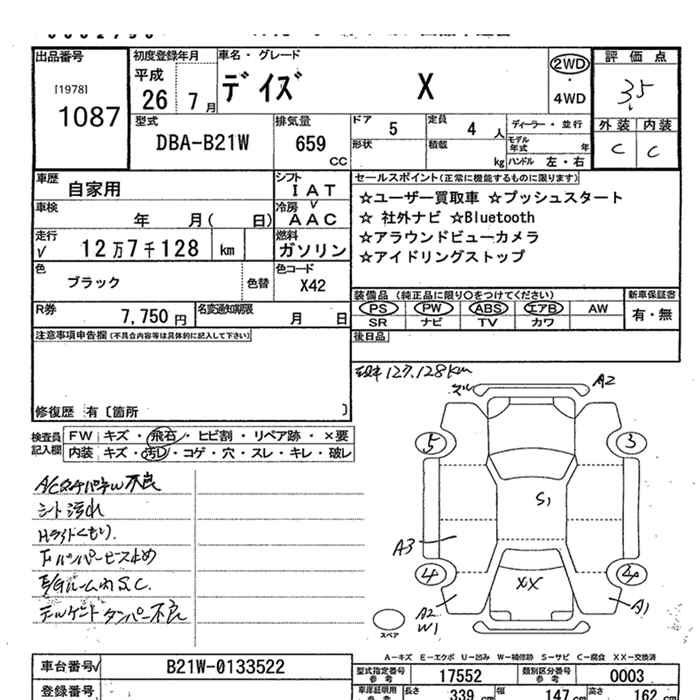 出品番号
[1978]
1087
初度登録年月
平成
26 7月
車名・グレード
デイズ X
2WD
・
4WD
評価点
3.5
外装 内装
C C
型式
DBA-B21W
排気量
659
CC
ドア
5
定員
4 人
形状
積載
kg
ディーラー・並行
モデル年式 年
ハンドル 左・右
車歴
自家用
シフト
I A T
車検
年 月( 日)
冷房
A A C
走行
√ 12万7千128 km
燃料
ガソリン
色
ブラック
色替
色コード
X42
セールスポイント(正常に機能するものに限ります)
☆ユーザー買取車 ☆プッシュスタート
☆ 社外ナビ ☆Bluetooth
☆アラウンドビューカメラ
☆アイドリングストップ
装備品 (純正品に限り○をつけてください)
新車保証書
PS PW ABS エアB AW
SR ナビ TV カワ
有・無
R券
7,750 円
名変通知期限
月 日
後日品
注意事項申告欄(不具合内容等は具体的に記入して下さい)
修復歴 有〔箇所 〕
検査員
記入欄
FW キズ・飛石・ヒビ割・リペア跡・×要
内装 キズ・汚れ・コゲ・穴・スレ・キレ・破レ
A/Cタッチパネル不良
シート汚れ
Hライトくもり.
Fバンパービス止め
E/Gルーム内S.C.
テールゲートダンパー不良
127,128km
A2
5
3
S1
A3
4
4
XX
A2
W1
A1
スペア
A-キズ E-エクボ U-凹み W-補修跡 S-サビ C-腐食 XX-交換済
車台番号√
B21W-0133522
型式指定番号
参考
17552
類別区分番号
参考
0003
登録番号
車庫証明用
参考
長さ 339 cm 幅 147 cm 高さ 162 cm